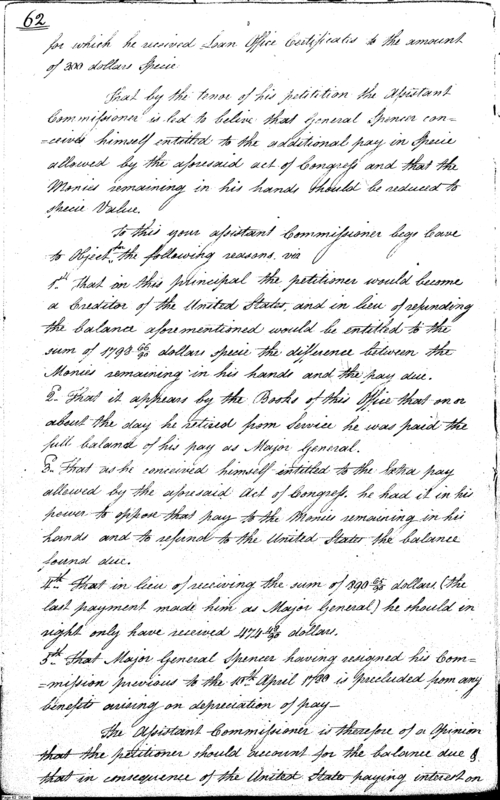 62
for which he received Loan Office Certificates to the amount
of 300 dollars Specie
That by the tenor of his petition the Assistant
Commissioner is led to believe that General Spencer con=
=ceives himself entitled to the additional pay in Specie
allowed by the aforesaid act of Congress and that the
Monies remaining in his hands should be reduced to
specie Value.
To this your assistant Commissioner begs leave
to Object for the following reasons, viz
1st That on this principal the petitioner would become
a Creditor of the United States, and in lieu of refunding
the balance aforementioned would be entitled to the
sum of 1798 66/90 dollars specie the difference between the
Monies remaining in his hands and the pay due.
2. That it appears by the Books of this Office that on or
about the day he retired from Service he was paid the
full balance of his pay as Major General.
3. That as he conceived himself entitled to the Extra pay
allowed by the aforesaid Act of Congress, he had it in his
power to oppose that pay to the Monies remaining in his
hands and to refund to the United States the balance
found due.
4th That in lieu of receiving the sum of dollars (the
last payment made him as Major General) he should in
right only have received dollars.
5th That Major General Spencer having resigned his Com=
=mission previous to the 10th April 1780 is precluded from any
benefits arising on depreciation of pay—
The Assistant Commissioner is therefore of a Opinion
that the petitioner should account for the balance due &
that in consequence of the United States paying interest on